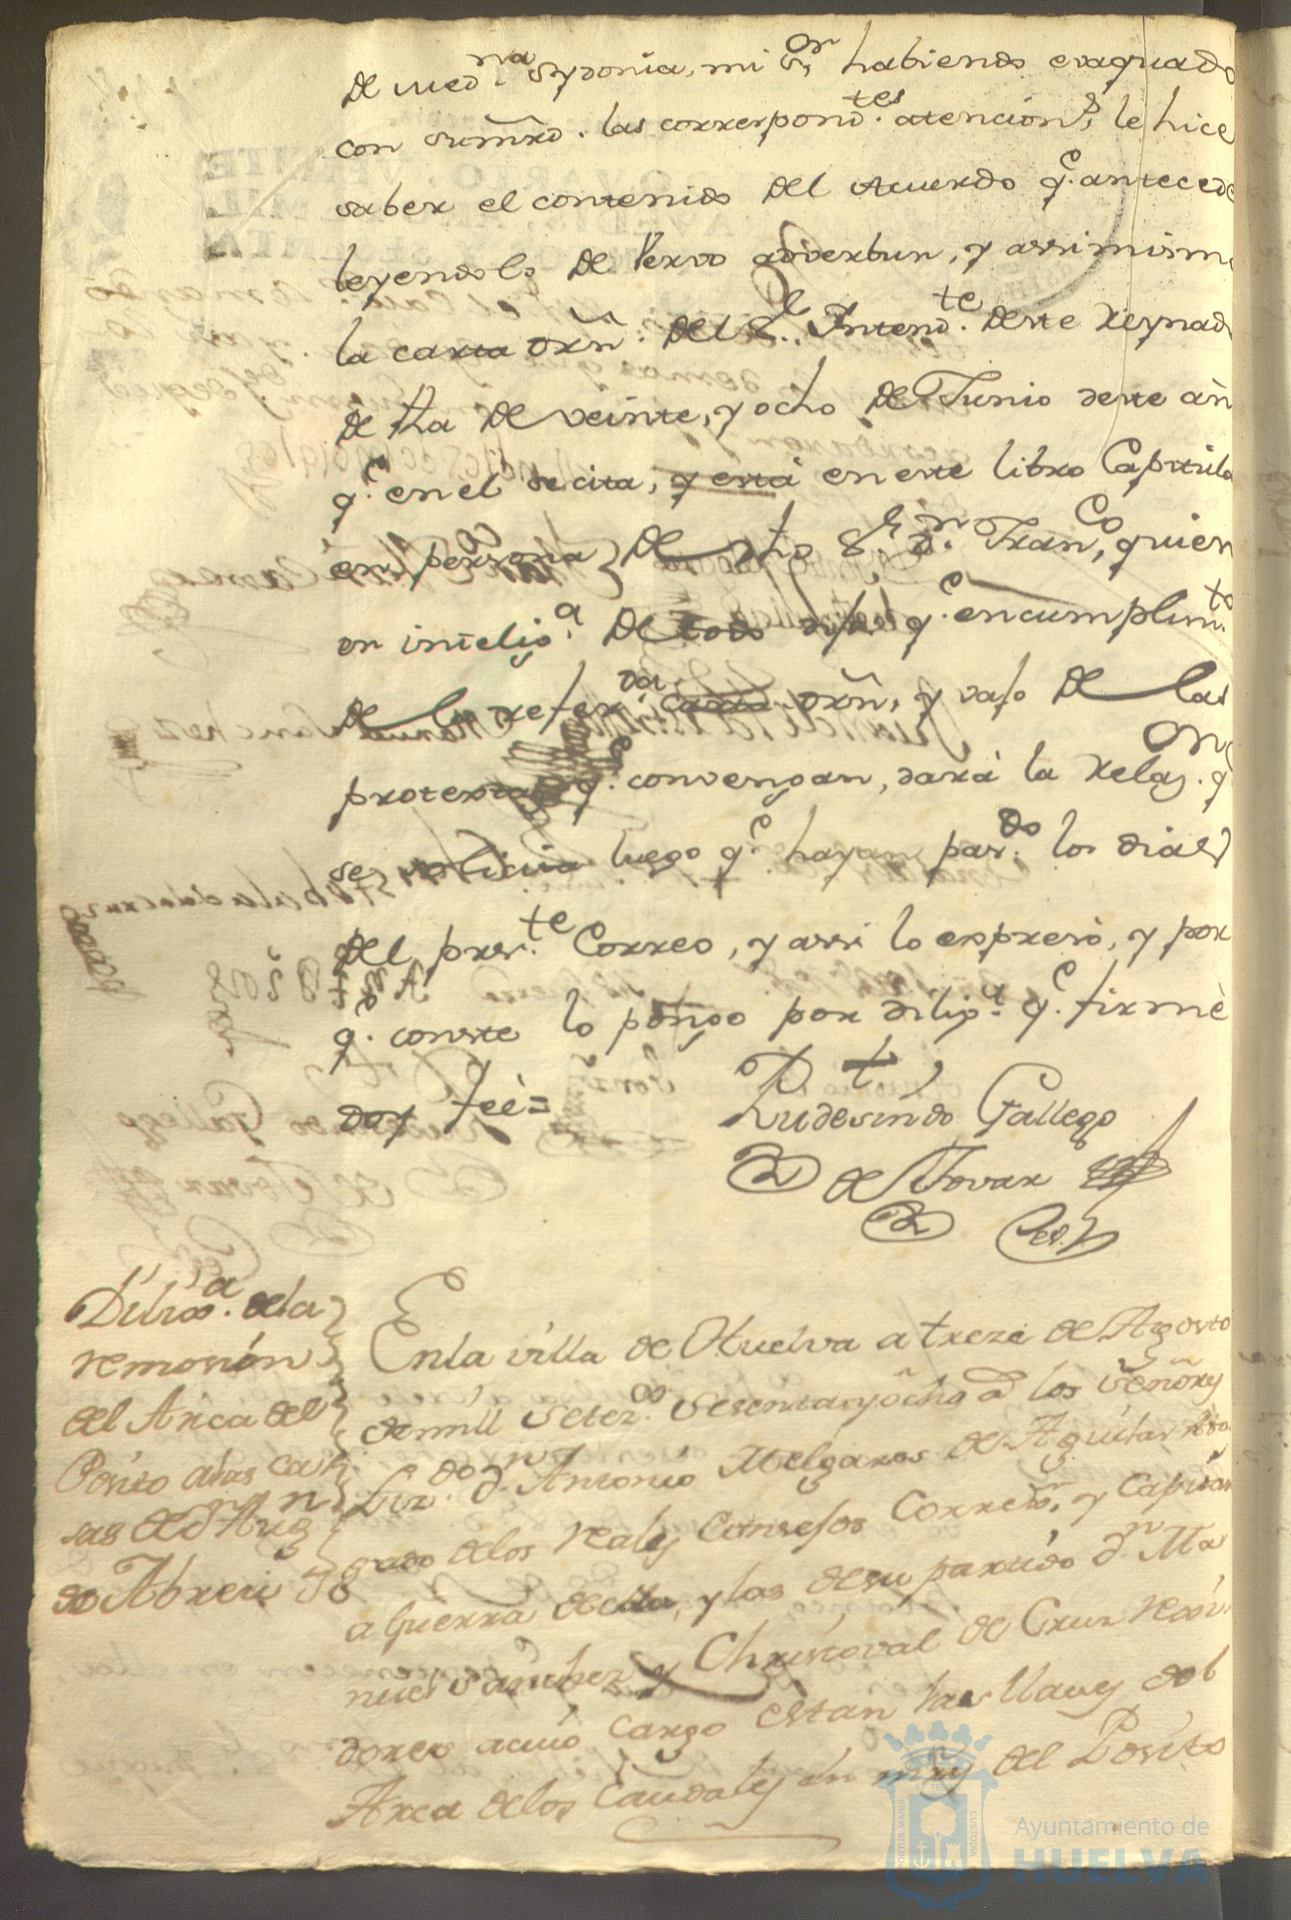 de Med.na Sydonia, mi S.or, habiendo evaquado
con su mrd. las correspond.tes atencion.s, le hice
saber el contenido del Acuerdo q.e antecede
leyendolo de Vervo adverbun, y assimismo
la carta orñ. del S.r Intend.te deste Reynado
de fha de veinte, y ocho de Junio deste añ
q.e en el se cita, y está en este libro Capitula
en persona de dho S.r D.n Fran.co, quien
en intelig.a de todo dixo q.e en cumplim.to
de la refer.da carta orñ, y vajo de las
protextas q.e convengan, dará la Relaz.on q
se solicita luego q.e hayan pas.do los dias
del pres.te Correo, y assi lo expresó, y por
q.e conste lo pongo por dilig.a q.e firmè
doy feè=
Rudesindo Gallego
de Tovar
es.
Dilix.a de la
remosión
del Arca del
Posito a las ca
sas de D.n Aug
de Abreu
En la villa de Huelva a treze de Agosto
de mill setez.os sesentayocho a los señores
Liz.do d.n Antonio Melgaros de Aguilar Abo
gado de los reales Consejos Correx.or, y Capitan
a Guerra de ella, y las de su partido d.n Ma
nuel Sanchez y Christoval de Cruz rexi
dores acuio cargo estan las llaves del
Arca de los Caudales en mrs del Posito
PORTUS MARIS
ET TERRAE
CUSTODIA
Ayuntamiento de
HUELVA